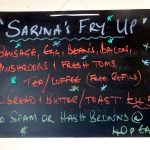 "SARINA'S FRY UP"
SAUSAGE, EGG, BEANS, BACON,
MUSHROOMS & FRESH TOMS
& TEA/COFFEE (FREE REFILLS)
BREAD & BUTTER/TOAST
SPAM OR HASH BROWNS @
40p EA